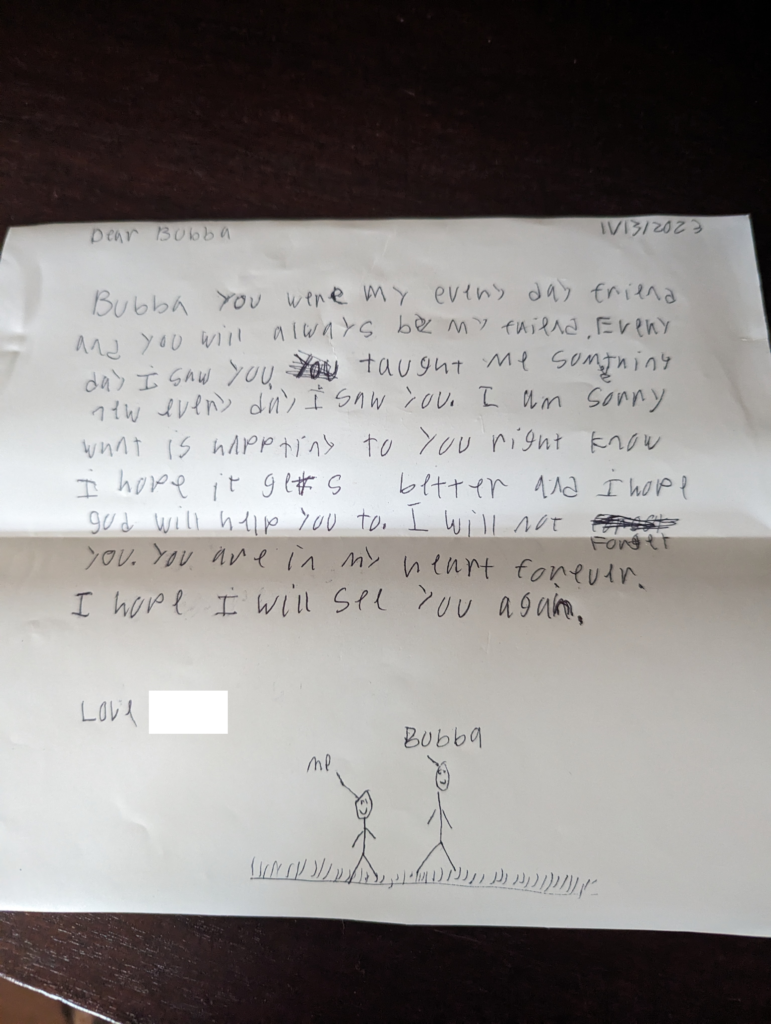 Dear Bubba 11/13/2023
Bubba you were my every day friend
and you will always be my friend. Every
day I saw you taught me somthing
new every day I saw you. I am sorry
what is happting to you right know
I hope it gets better and I hope
god will help you to. I will not
Forget
you. You are in my heart forever.
I hope I will see you again.
Love
Bubba
me